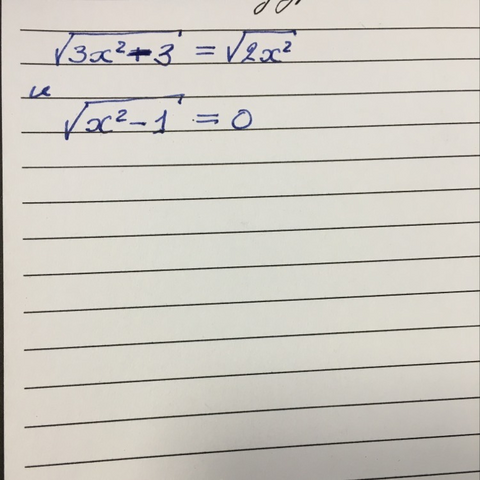 √3x²-3 = √2x²
и
√x²-1 = 0